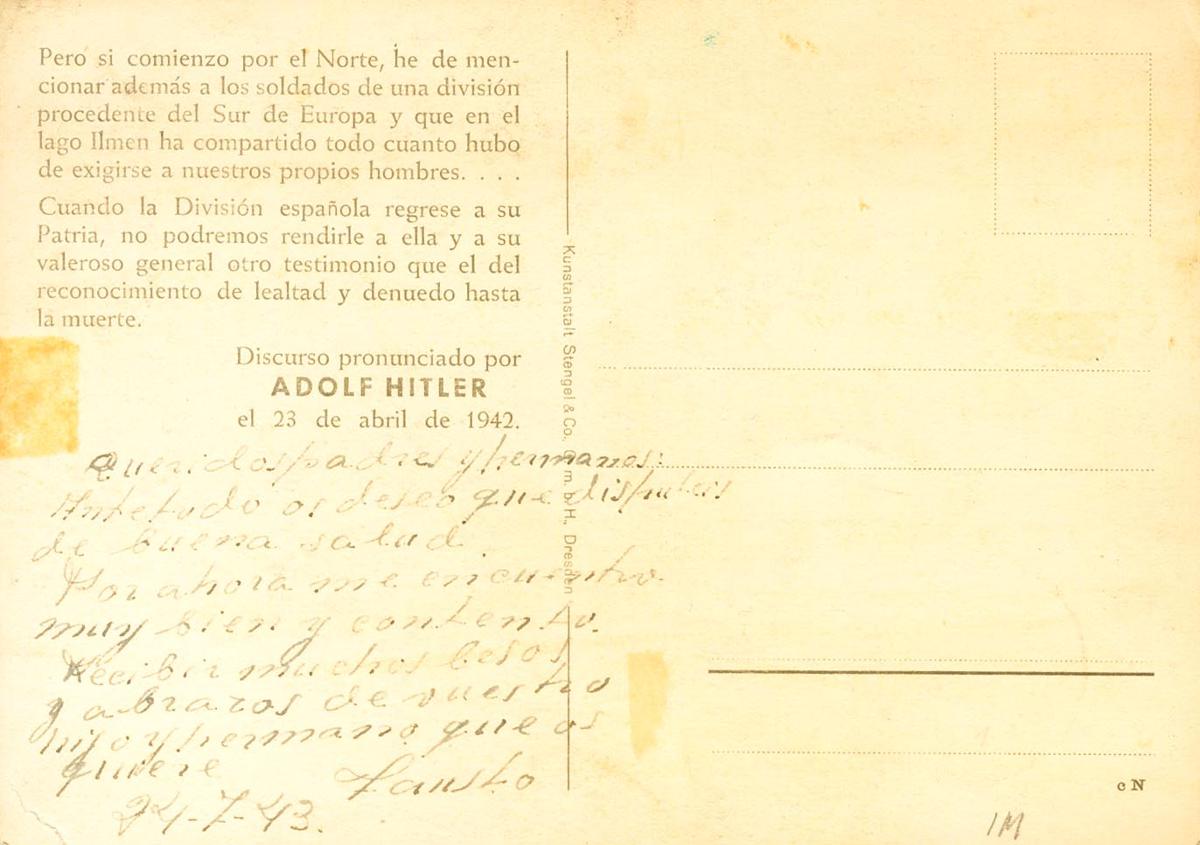 Pero si comienzo por el Norte, he de men-
cionar además a los soldados de una división
procedente del Sur de Europa y que en el
lago Ilmen ha compartido todo cuanto hubo
de exigirse a nuestros propios hombres. . . .
Cuando la División española regrese a su
Patria, no podremos rendirle a ella y a su
valeroso general otro testimonio que el del
reconocimiento de lealtad y denuedo hasta
la muerte.
Discurso pronunciado por
ADOLF HITLER
el 23 de abril de 1942.
Queridos padres y hermanos:
Ante todo os deseo que disfruteis
de buena salud.
Por ahora me encuentro
muy bien y contento.
Recibir muchos besos
y abrazos de vuestro
hijo y hermano que os
quiere Fausto
24-7-43.
Kunstanstalt Stengel & Co. G.m.b.H., Dresden
c N
1M